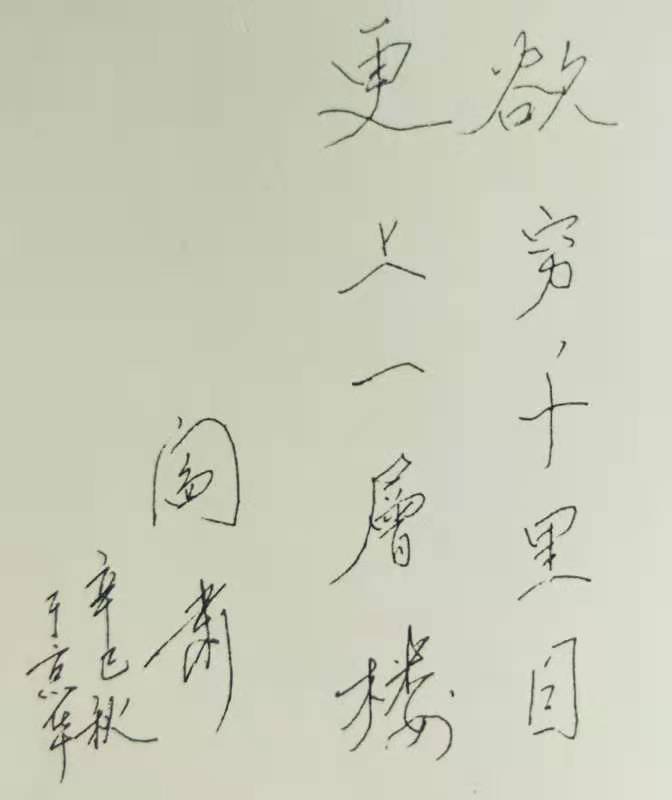 欲穷千里目
更上一層楼
阎肃
辛巳秋
于京华